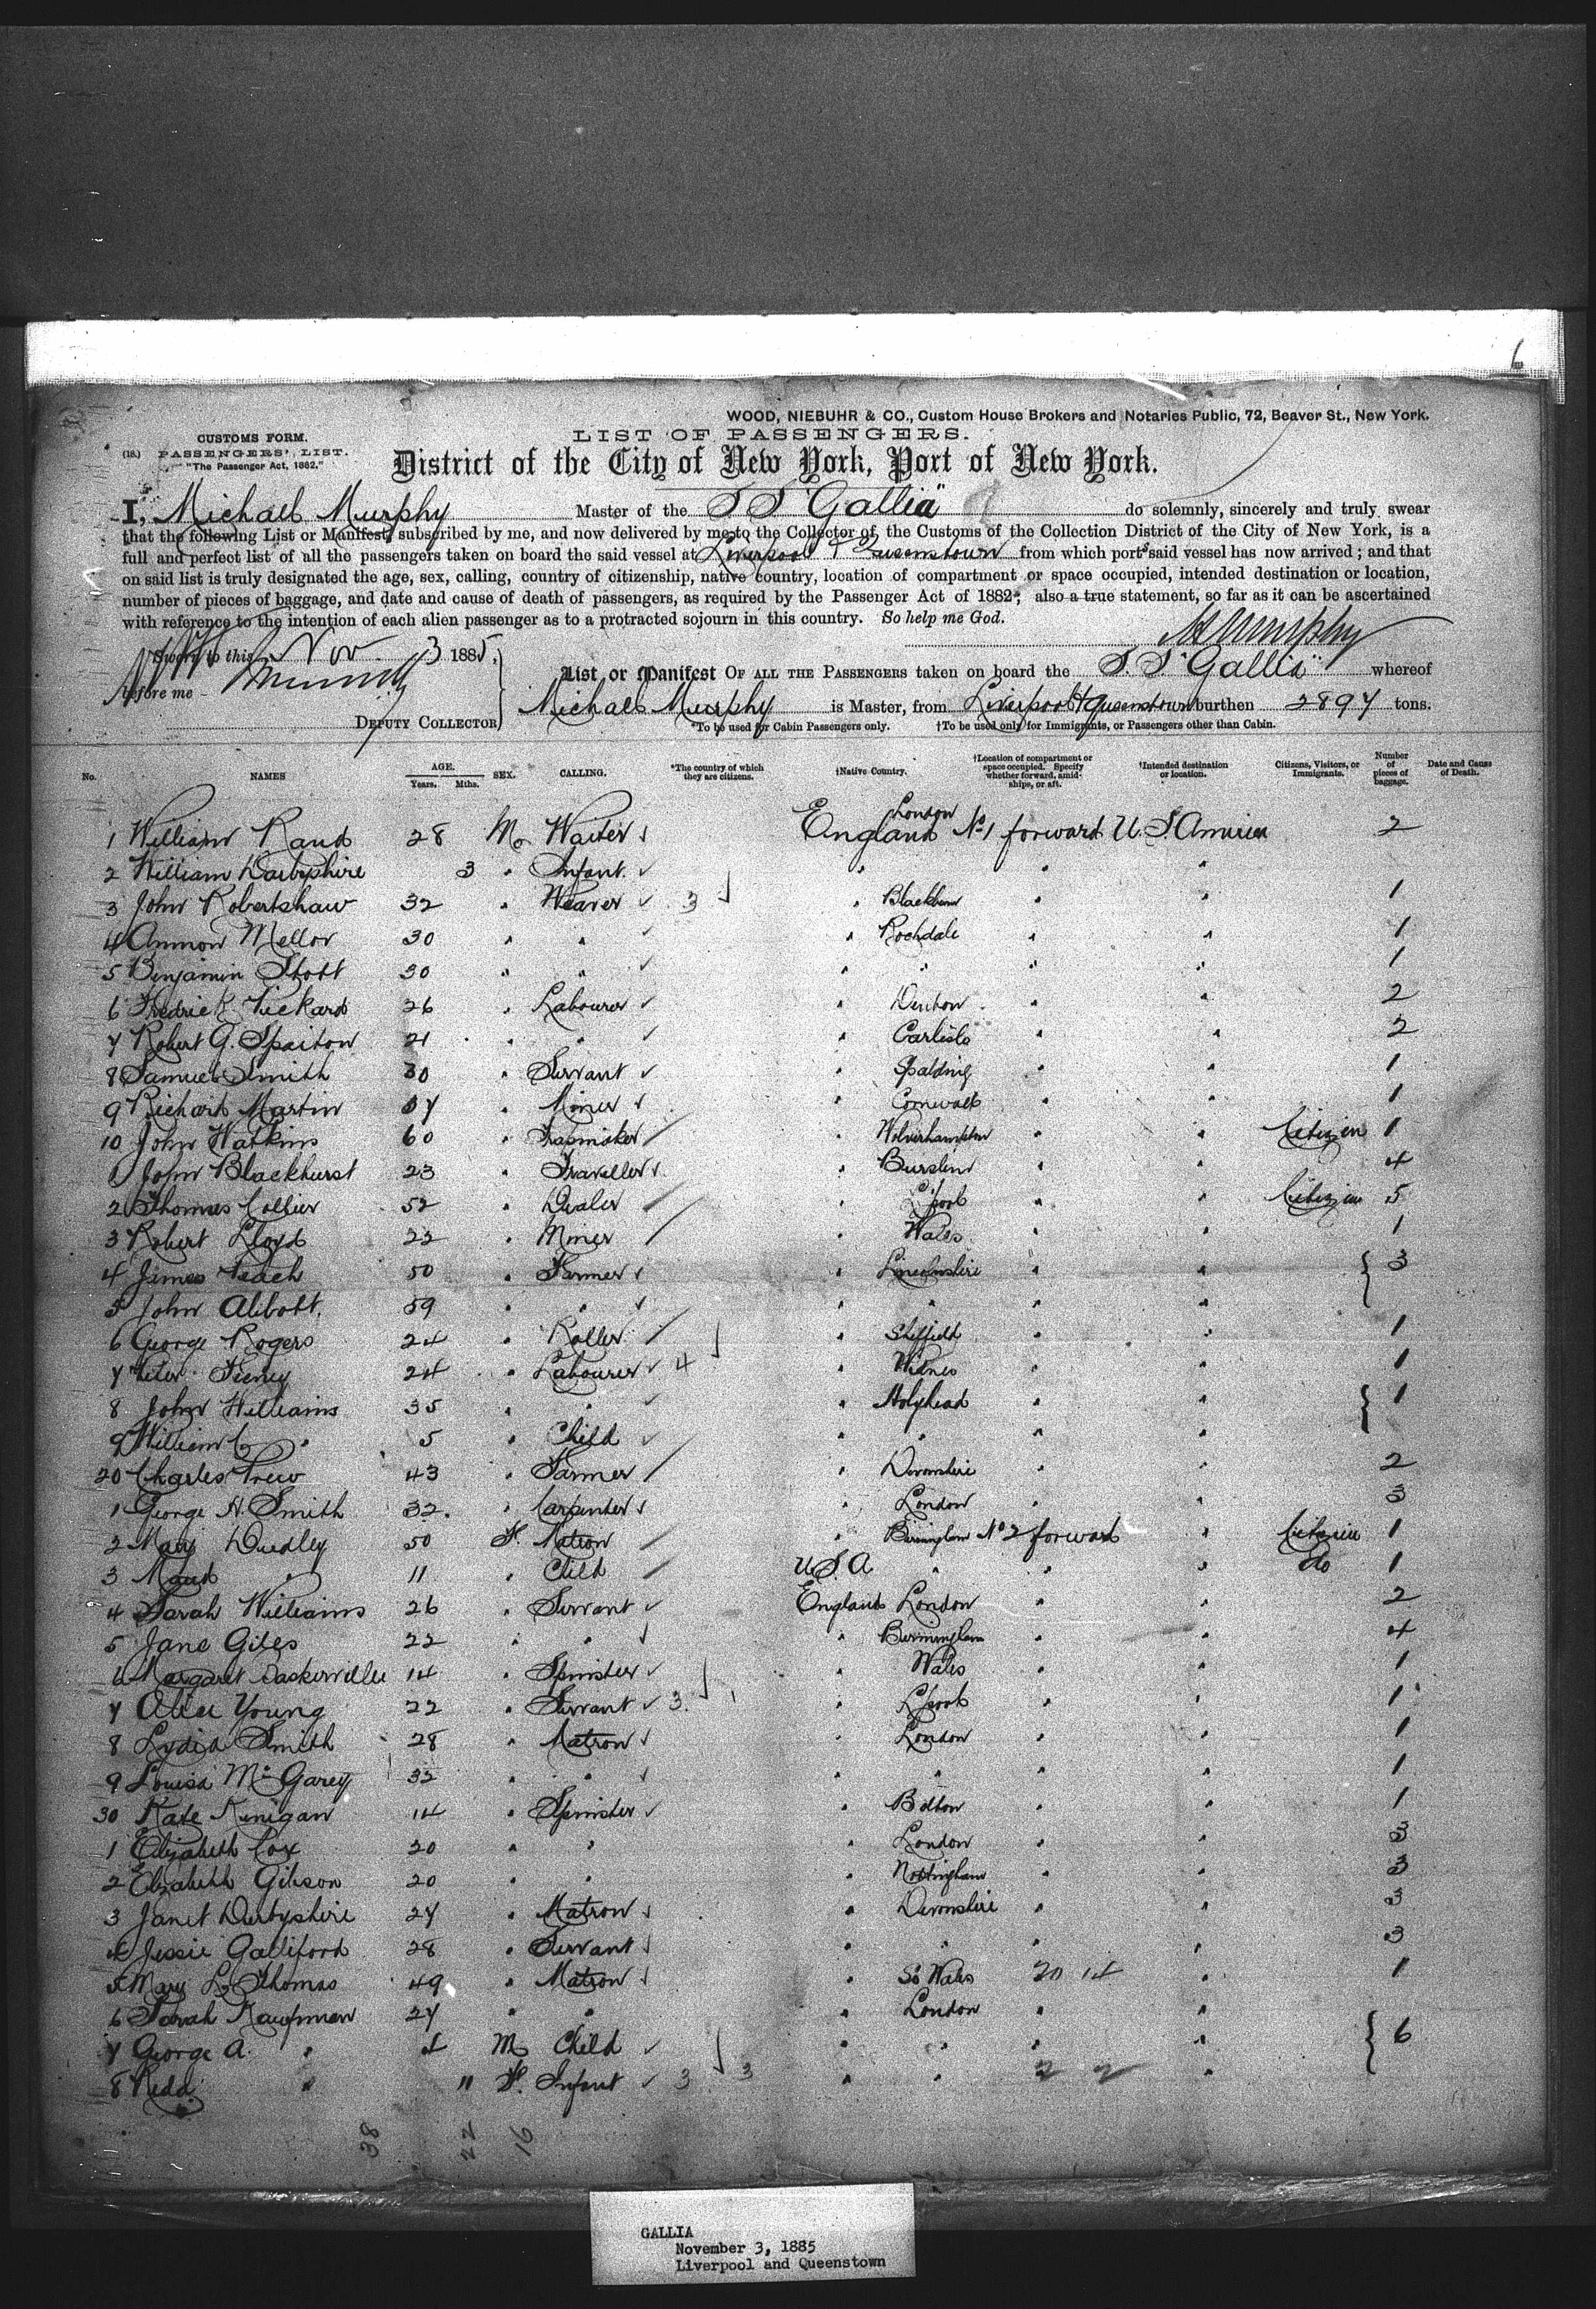 6
WOOD, NIEBUHR & CO., Custom House Brokers and Notaries Public, 72, Beaver St., New York.
CUSTOMS FORM.
LIST OF PASSENGERS.
(18.) PASSENGERS' LIST.
"The Passenger Act, 1882."
District of the City of New York, Port of New York.
I, Michael Murphy Master of the S S "Gallia" do solemnly, sincerely and truly swear
that the following List or Manifest, subscribed by me, and now delivered by me to the Collector of the Customs of the Collection District of the City of New York, is a
full and perfect list of all the passengers taken on board the said vessel at Liverpool & Queenstown from which ports said vessel has now arrived; and that
on said list is truly designated the age, sex, calling, country of citizenship, native country, location of compartment or space occupied, intended destination or location,
number of pieces of baggage, and date and cause of death of passengers, as required by the Passenger Act of 1882; also a true statement, so far as it can be ascertained
with reference to the intention of each alien passenger as to a protracted sojourn in this country. So help me God.
M Murphy
Sworn to this Nov 3 1885.
before me
List or Manifest OF ALL THE PASSENGERS taken on board the S. S. "Gallia" whereof
DEPUTY COLLECTOR
Michael Murphy is Master, from Liverpool & Queenstown burthen 2897 tons.
*To be used for Cabin Passengers only. †To be used only for Immigrants, or Passengers other than Cabin.
No. NAMES AGE. Years. Mths. SEX. CALLING. *The country of which they are citizens. †Native Country. †Location of compartment or space occupied. Specify whether forward, amidships, or aft. †Intended destination or location. Citizens, Visitors, or Immigrants. Number of pieces of baggage. Date and Cause of Death.
1 William Rand 28 M Waiter England London No 1 forward U. S. America 2
2 William Darbyshire 3 " Infant " " "
3 John Robertshaw 32 " Weaver 3 " Blackburn " " 1
4 Ammon Mellor 30 " " " Rochdale " " 1
5 Benjamin Stott 30 " " " " " " 1
6 Fredrick Pickard 26 " Labourer " Denton " " 2
7 Robert G. 21 " " " Carlisle " " 2
8 Samuel Smith 30 " Servant " Spalding " " 1
9 Richard Martin 37 " Miner " Cornwall " " 1
10 John Watkins 60 " " Wolverhampton " " Citizen 1
1 John Blackhurst 23 " Traveller " Burslem " " 4
2 Thomas Collier 52 " Dealer " L'pool " " Citizen 5
3 Robert Lloyd 22 " Miner " Wales " " 1
4 James Leach 50 " Farmer " Lincolnshire " " 3
5 John Abbott 59 " " " " " "
6 George Rogers 24 " Roller " Sheffield " " 1
7 Peter Feeney 24 " Labourer 4 " Widnes " " 1
8 John Williams 35 " " " Holyhead " " 1
9 William C " 5 " Child " " " "
20 Charles Trew 43 " Farmer " Devonshire " " 2
1 George H. Smith 32 " Carpenter " London " " 3
2 Mary Dudley 50 F. Matron " Birmingham No 2 forward " Citizen 1
3 Maud " 11 " Child U S. A " " " do 1
4 Sarah Williams 26 " Servant England London " " 2
5 Jane Giles 22 " " " Birmingham " " 4
6 Margaret Baskerville 14 " Spinster " Wales " " 1
7 Alice Young 22 " Servant 3 " L'pool " " 1
8 Lydia Smith 28 " Matron " London " " 1
9 Louisa McGarey 32 " " " " " " 1
30 Kate Kinigan 14 " Spinster " Bolton " " 1
1 Elizabeth Cox 20 " " " London " " 3
2 Elizabeth Gibson 20 " " " Nottingham " " 3
3 Janet Darbyshire 27 " Matron " Devonshire " " 3
4 Jessie Galliford 28 " Servant " " " " 3
5 Mary L. Thomas 49 " Matron " So Wales 20 14 " 1
6 Sarah Kaufman 27 " " " London " "
7 George A. " 4 M Child " " " " 6
8 " 11 F. Infant 3 3 " " 2 2 "
38 22 16
GALLIA
November 3, 1885
Liverpool and Queenstown